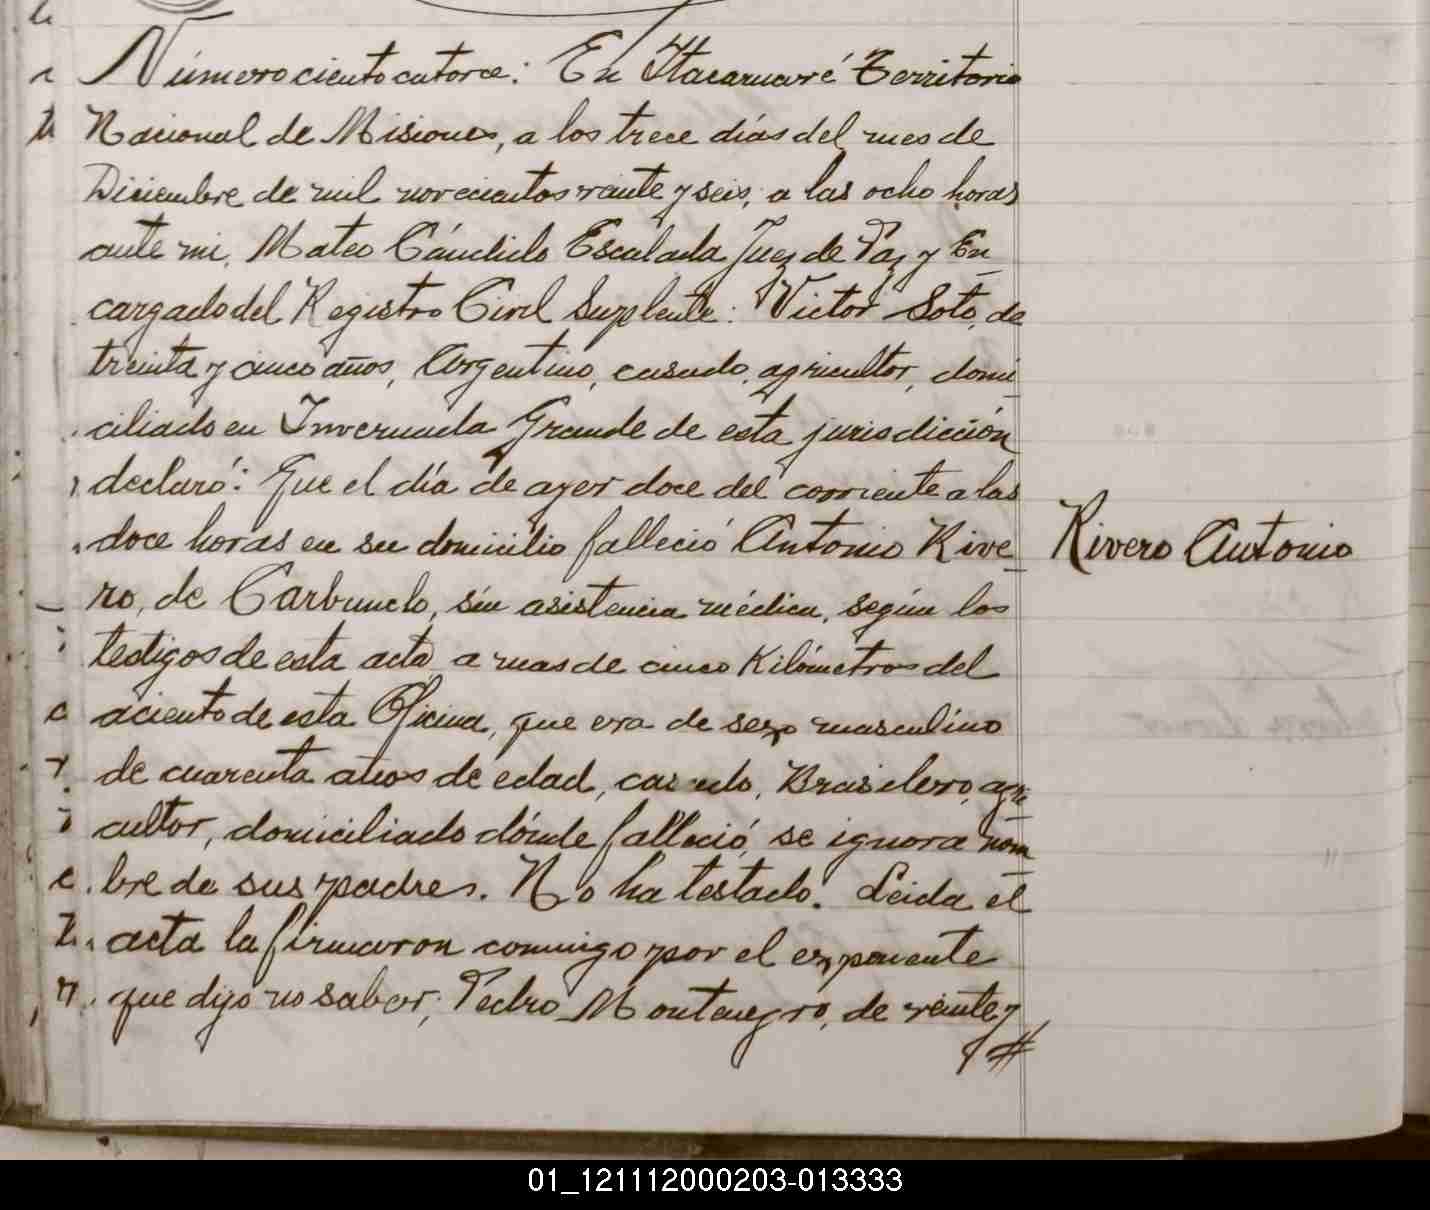 Número ciento catorce: En Itacaruaré Territorio
Nacional de Misiones, a los trece días del mes de
Diciembre de mil novecientos veinte y seis, a las ocho horas
ante mi, Mateo Cándido Escalada Juez de Paz y En
cargado del Registro Civil Suplente: Victor Soto, de
treinta y cinco años, Argentino, casado, agricultor, domi
ciliado en Invernada Grande de esta jurisdicción
declaró: Que el día de ayer doce del corriente a las
doce horas en su domicilio falleció Antonio Rive
ro, de Carbunclo, sin asistencia médica, según los
testigos de esta acta, a mas de cinco Kilómetros del
aciento de esta Oficina, que era de sexo masculino
de cuarenta años de edad, casado, Brasilero, agri
cultor, domiciliado dónde falleció, se ignora nom
bre de sus padres. No ha testado. Leida el
acta la firmaron conmigo por el exponente
que dijo no saber, Pedro Montenegro, de veinte y
Rivero Antonio
01_121112000203-013333